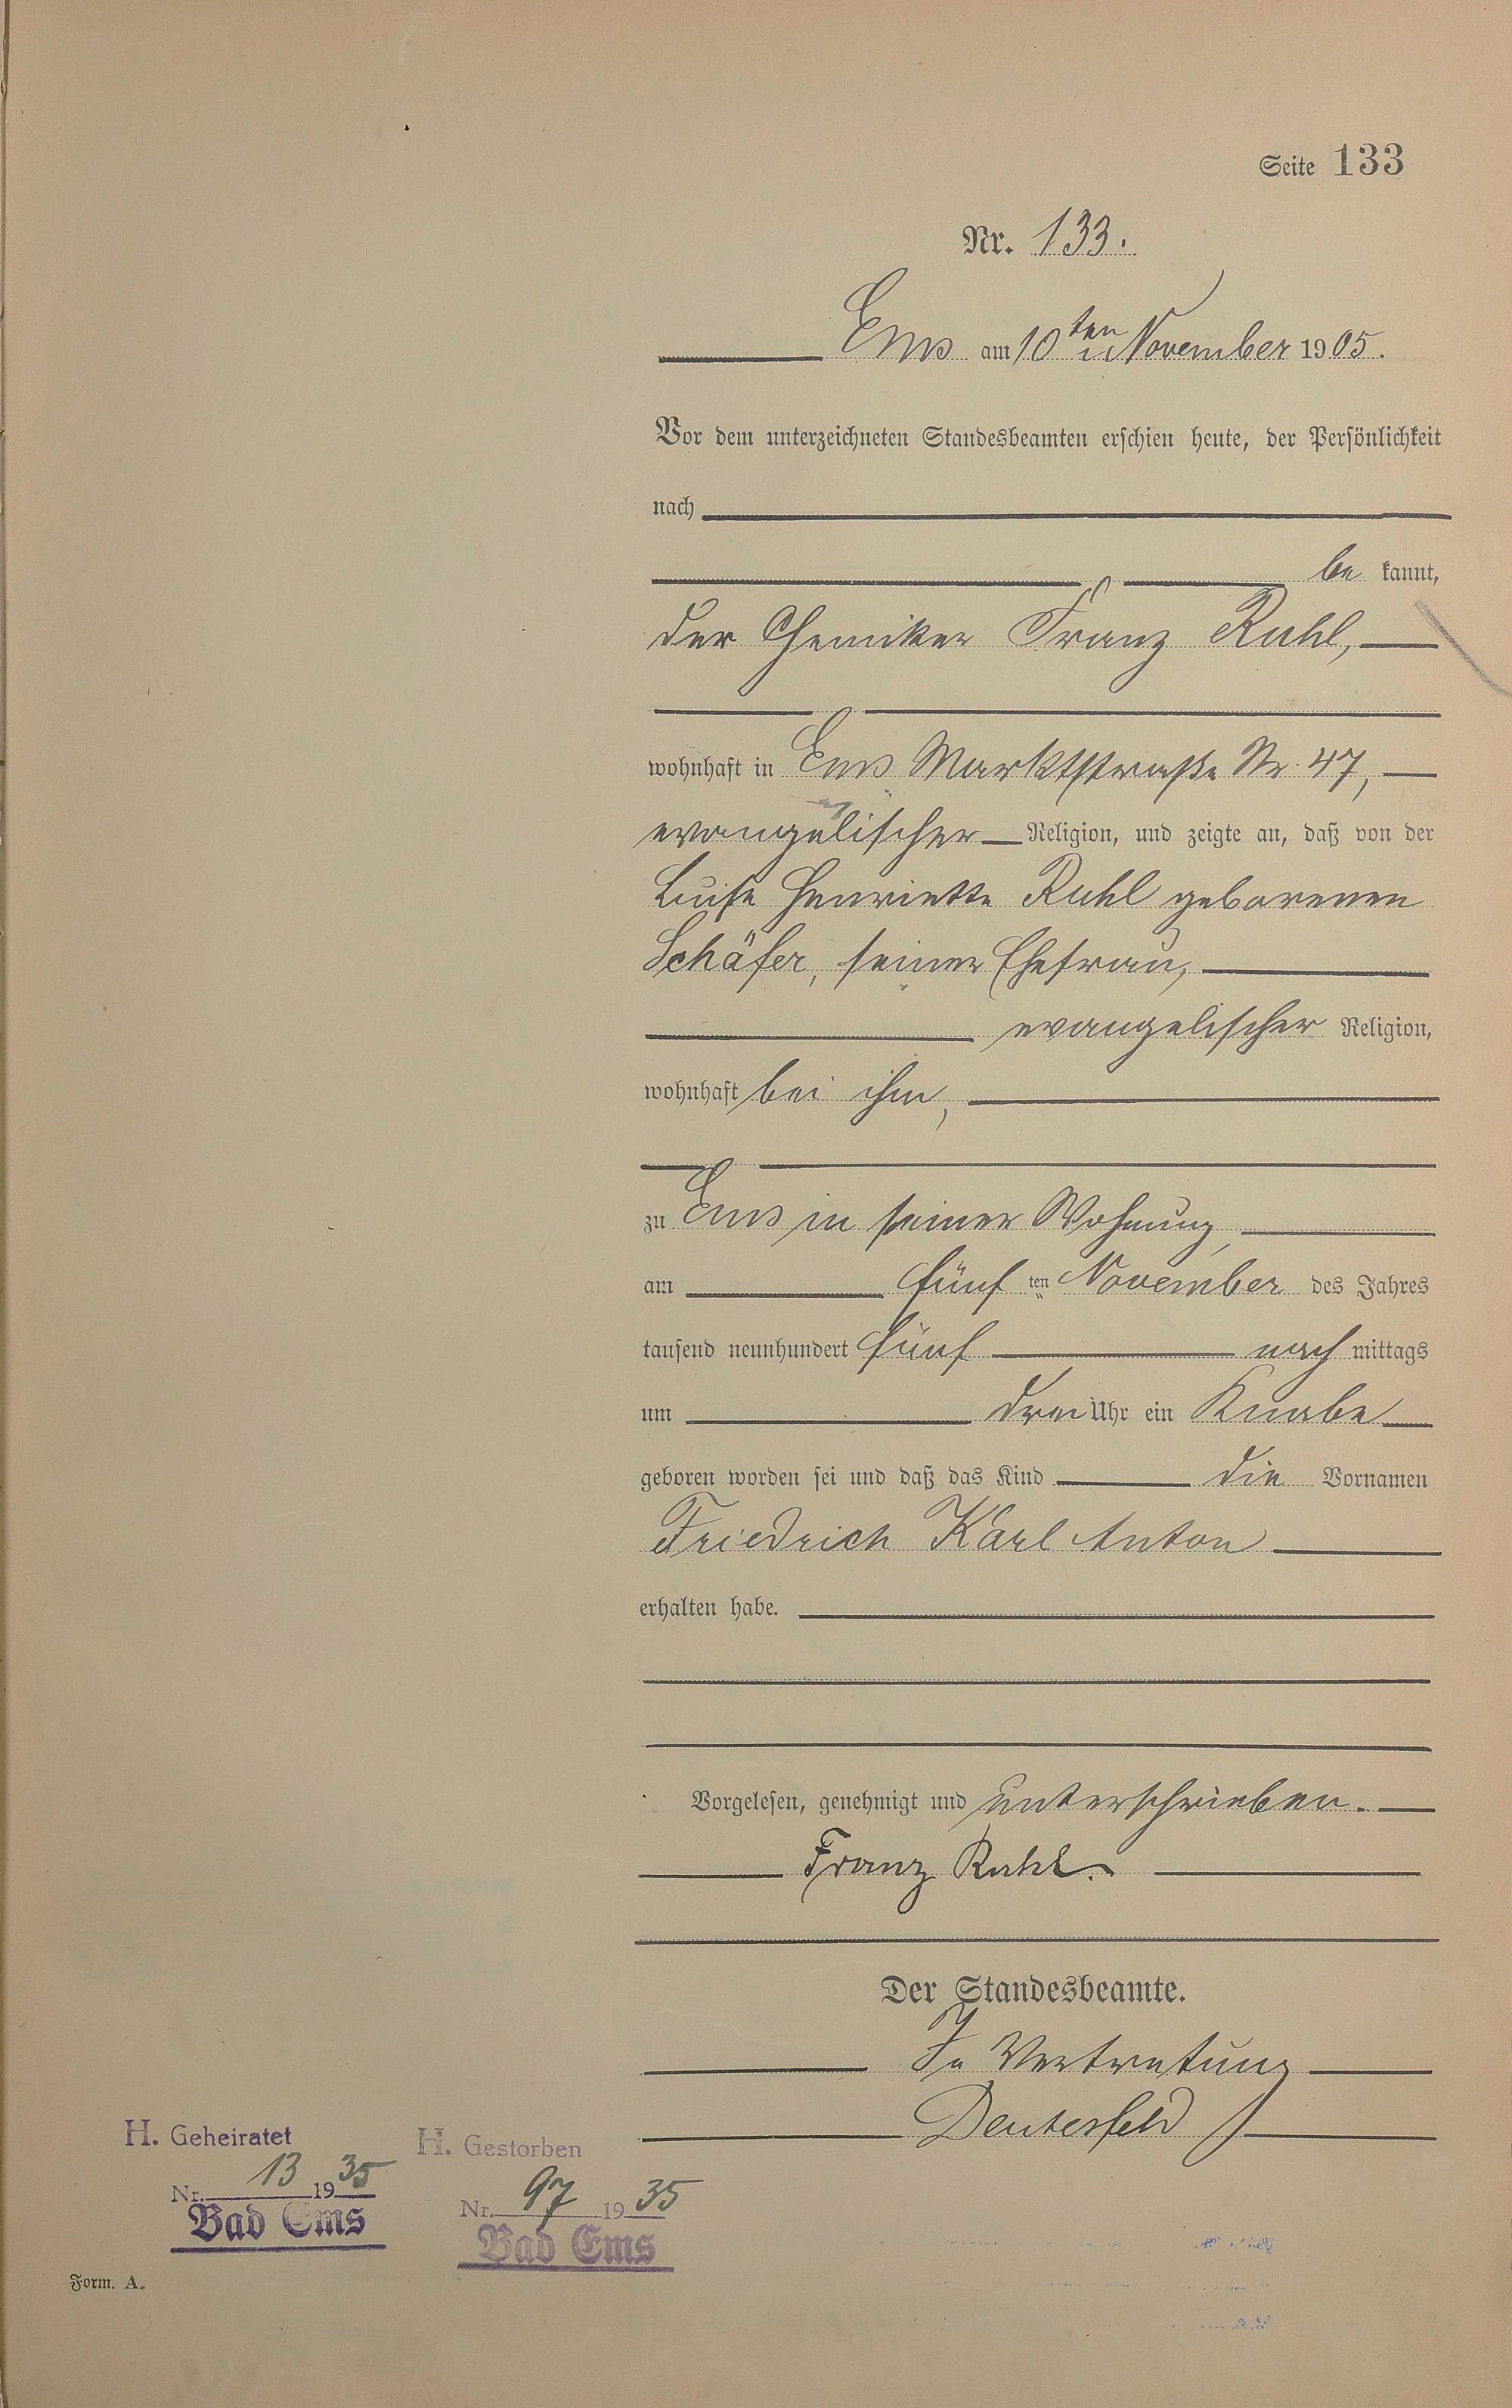 Seite 133
Nr. 133.
Ems am 10ten November 1905.
Vor dem unterzeichneten Standesbeamten erschien heute, der Persönlichkeit
nach
be kannt,
der Chemiker Franz Ruhl,
wohnhaft in Ems Marktstraße Nr. 47,
evangelischer Religion, und zeigte an, daß von der
Luise Henriette Ruhl geborenen
Schäfer, seiner Ehefrau,
evangelischer Religion,
wohnhaft bei ihm,
zu Ems in seiner Wohnung,
am fünf ten November des Jahres
tausend neunhundert fünf nach mittags
um drei Uhr ein Knabe
geboren worden sei und daß das Kind die Vornamen
Friedrich Karl Anton
erhalten habe.
Vorgelesen, genehmigt und unterschrieben.
Franz Ruhl.
Der Standesbeamte.
In Vertretung
H. Geheiratet
Nr. 13 1935
Bad Ems
H. Gestorben
Nr. 97 1935
Bad Ems
Form. A.